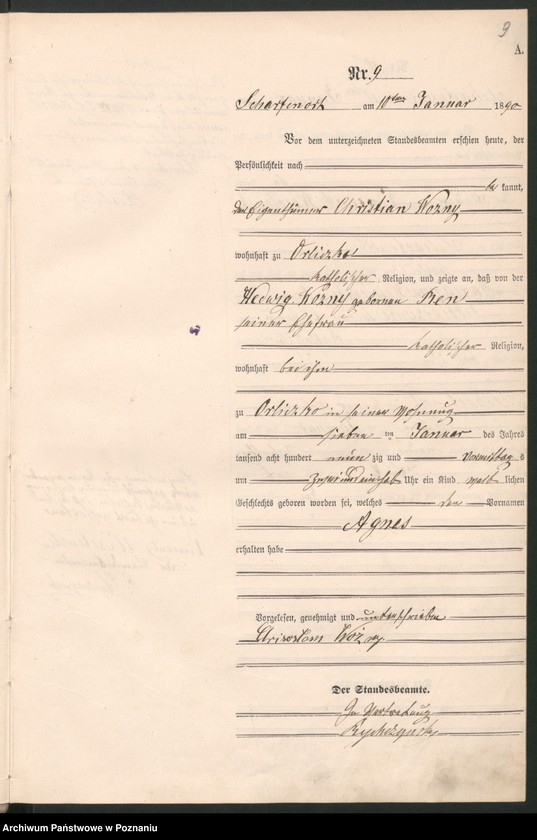 9
A.
Nr. 9
Scharfenort am 10ten Januar 1890
Vor dem unterzeichneten Standesbeamten erschien heute, der
Persönlichkeit nach
be kannt,
der Eigenthümer Christian Kozny
wohnhaft zu Orliczko
katholischer Religion, und zeigte an, daß von der
Hedwig Kozny geborenen Ren
seiner Ehefrau
katholischer Religion,
wohnhaft bei ihm
zu Orliczko in seiner Wohnung
am sieben ten Januar des Jahres
tausend acht hundert neun zig und Vormittag s
um Uhr ein Kind weib lichen
Geschlechts geboren worden sei, welches den Vornamen
Agnes
erhalten habe
Vorgelesen, genehmigt und unterschrieben
Der Standesbeamte.
In Vertretung
Archiwum Państwowe w Poznaniu